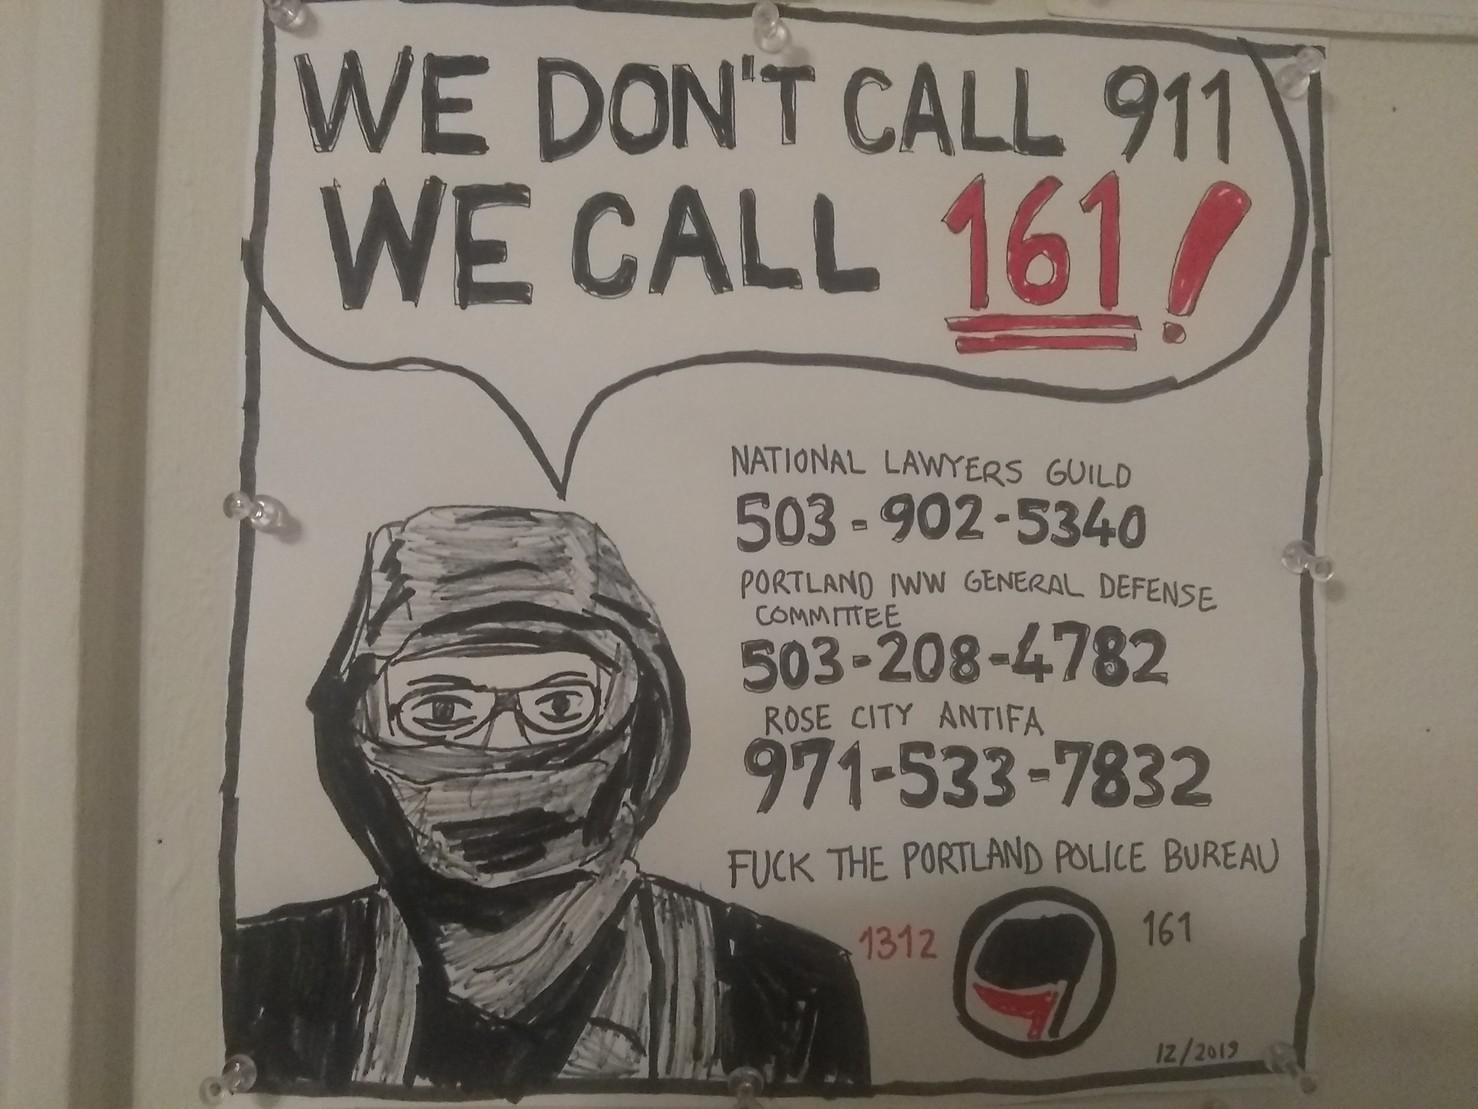 WE DON'T CALL 911
WE CALL 161!
NATIONAL LAWYERS GUILD
503-902-5340
PORTLAND IWW GENERAL DEFENSE
COMMITTEE
503-208-4782
ROSE CITY ANTIFA
971-533-7832
FUCK THE PORTLAND POLICE BUREAU
1312 161
12/2019